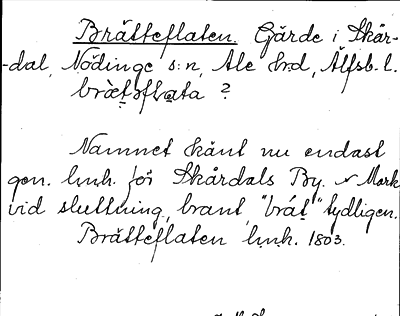 Brätteflaten. Gärde i Skår-
-dal, Nödinge s:n, Ale hrd, Älfsb. l.
brætəflata ?
Namnet känt nu endast
gen. lmh. för Skårdals By. Mark
vid sluttning, brant, "brát" tydligen.
Brätteflaten lmh. 1803.